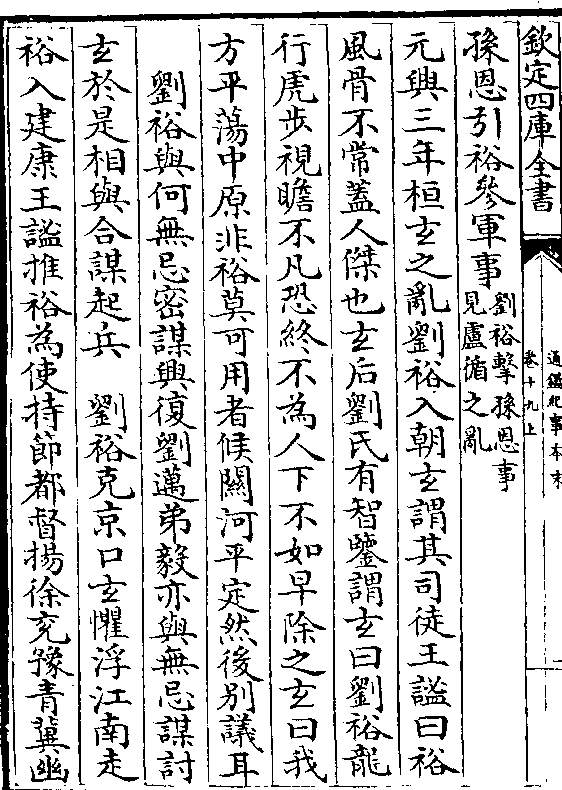 欽定四庫全書
通鑑紀事本末
卷十九上
孫恩引裕參軍事劉裕擊孫恩事
見盧循之亂
元興三年桓玄之亂劉裕入朝玄謂其司徒王謐曰裕
風骨不常蓋人傑也玄后劉氏有智鑒謂玄曰劉裕龍
行虎步視瞻不凡恐終不為人下不如早除之玄曰我
方平蕩中原非裕莫可用者俟關河平定然後別議耳
劉裕與何無忌密謀興復劉邁弟毅亦與無忌謀討
玄於是相與合謀起兵　劉裕克京口玄懼浮江南走
裕入建康王謐推裕為使持節都督揚徐兖豫青冀幽